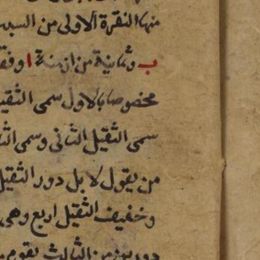 منها النقرة الاولى من السبب
ب وثمانية من ازمنة ا وقد
مخصوصا بالاول سمى الثقيل
سمى الثقيل الثانى وسمى الثـ
من يقول لا بل دور الثقيل
وخفيف الثقيل اربع وهى
من الثالث يقوم